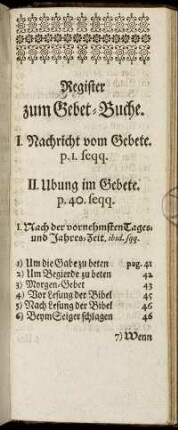 Register
zum Gebet-Buche.
I. Nachricht vom Gebete.
p. 1. seqq.
II. Ubung im Gebete.
p. 40. seqq.
1. Nach der vornehmsten Tages-
und Jahres-Zeit, ibid. sqq.
1) Um die Gabe zu beten pag. 41
2) Um Begierde zu beten 42
3) Morgen-Gebet 43
4) Vor Lesung der Bibel 45
5) Nach Lesung der Bibel 46
6) Beym Seiger schlagen 46
7) Wenn